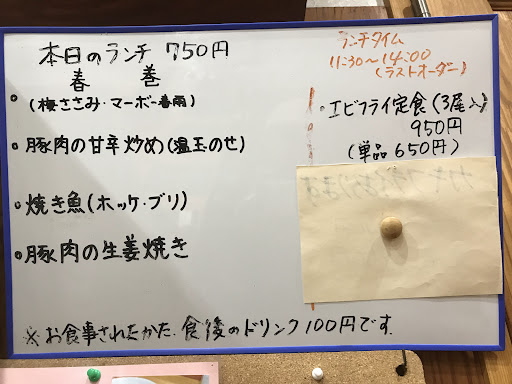 本日のランチ 750円
・春巻
(梅ささみ・マーボー春雨)
・豚肉の甘辛炒め(温玉のせ)
・焼き魚(ホッケ・ブリ)
・豚肉の生姜焼き
ランチタイム
11:30～14:00
(ラストオーダー)
・エビフライ定食(3尾入)
950円
(単品650円)
※お食事されたかた、食後のドリンク100円です.